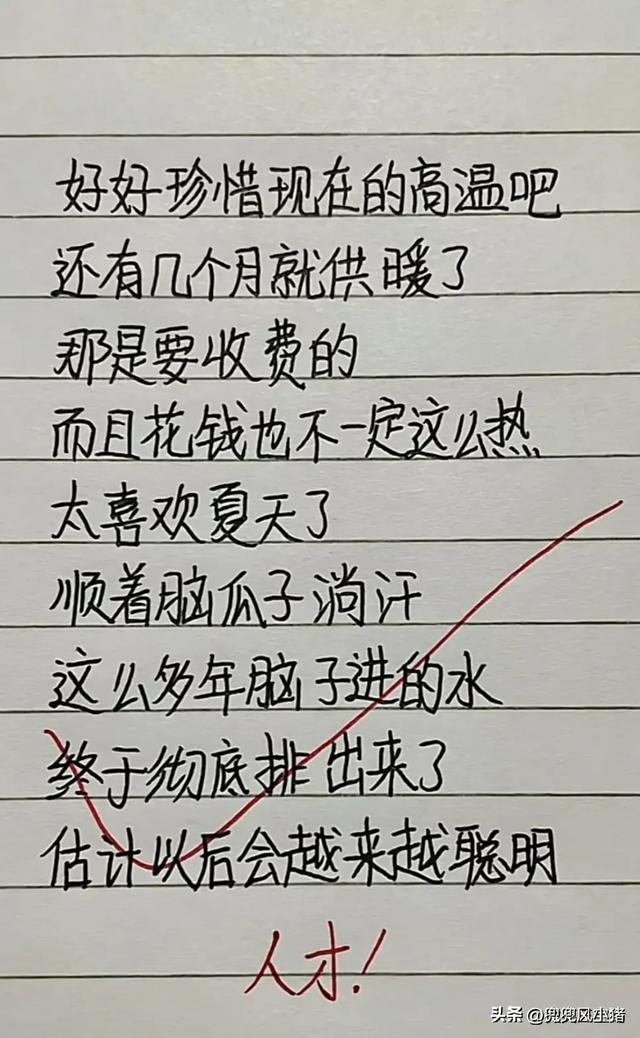 好好珍惜现在的高温吧
还有几个月就供暖了
那是要收费的
而且花钱也不一定这么热
太喜欢夏天了
顺着脑瓜子淌汗
这么多年脑子进的水
终于彻底排出来了
估计以后会越来越聪明
人才!
头条 @兜兜风小猪